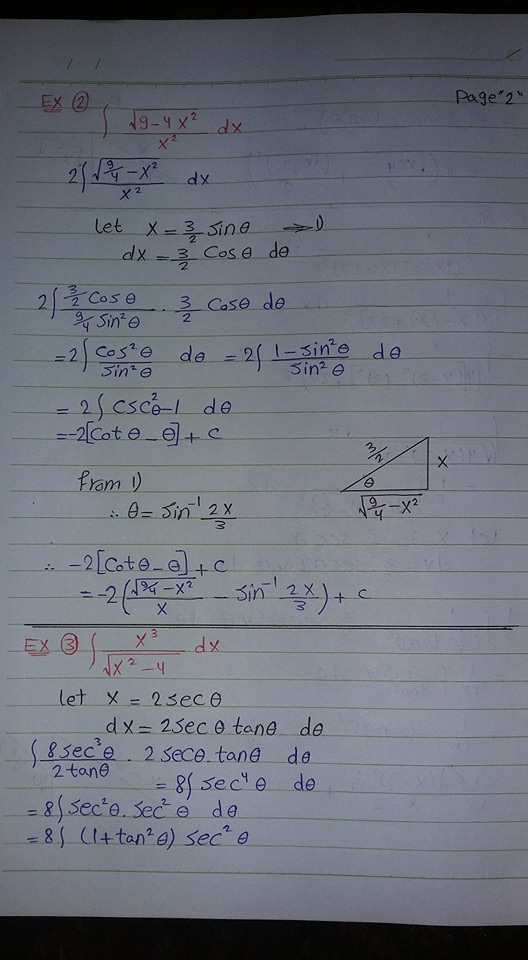 Page "2"
EX ② ∫ √(9-4x²) / x² dx
2∫ √(9/4 - x²) / x² dx
let x = 3/2 sinθ → 1)
dx = 3/2 cosθ dθ
2∫ (3/2 cosθ) / (9/4 sin²θ) · 3/2 cosθ dθ
= 2∫ cos²θ / sin²θ dθ = 2∫ (1-sin²θ) / sin²θ dθ
= 2∫ csc²θ-1 dθ
= -2[cotθ - θ] + c
from 1)
∴ θ = sin⁻¹ 2x/3
3/2
x
θ
√(9/4 - x²)
∴ -2[cotθ - θ] + c
= -2(√(9/4 - x²) / x - sin⁻¹ 2x/3) + c
EX ③ ∫ x³ / √(x²-4) dx
let x = 2secθ
dx = 2secθ tanθ dθ
∫ 8sec³θ / 2tanθ · 2secθ.tanθ dθ
= 8∫ sec⁴θ dθ
= 8∫ sec²θ.sec²θ dθ
= 8∫ (1+tan²θ) sec²θ